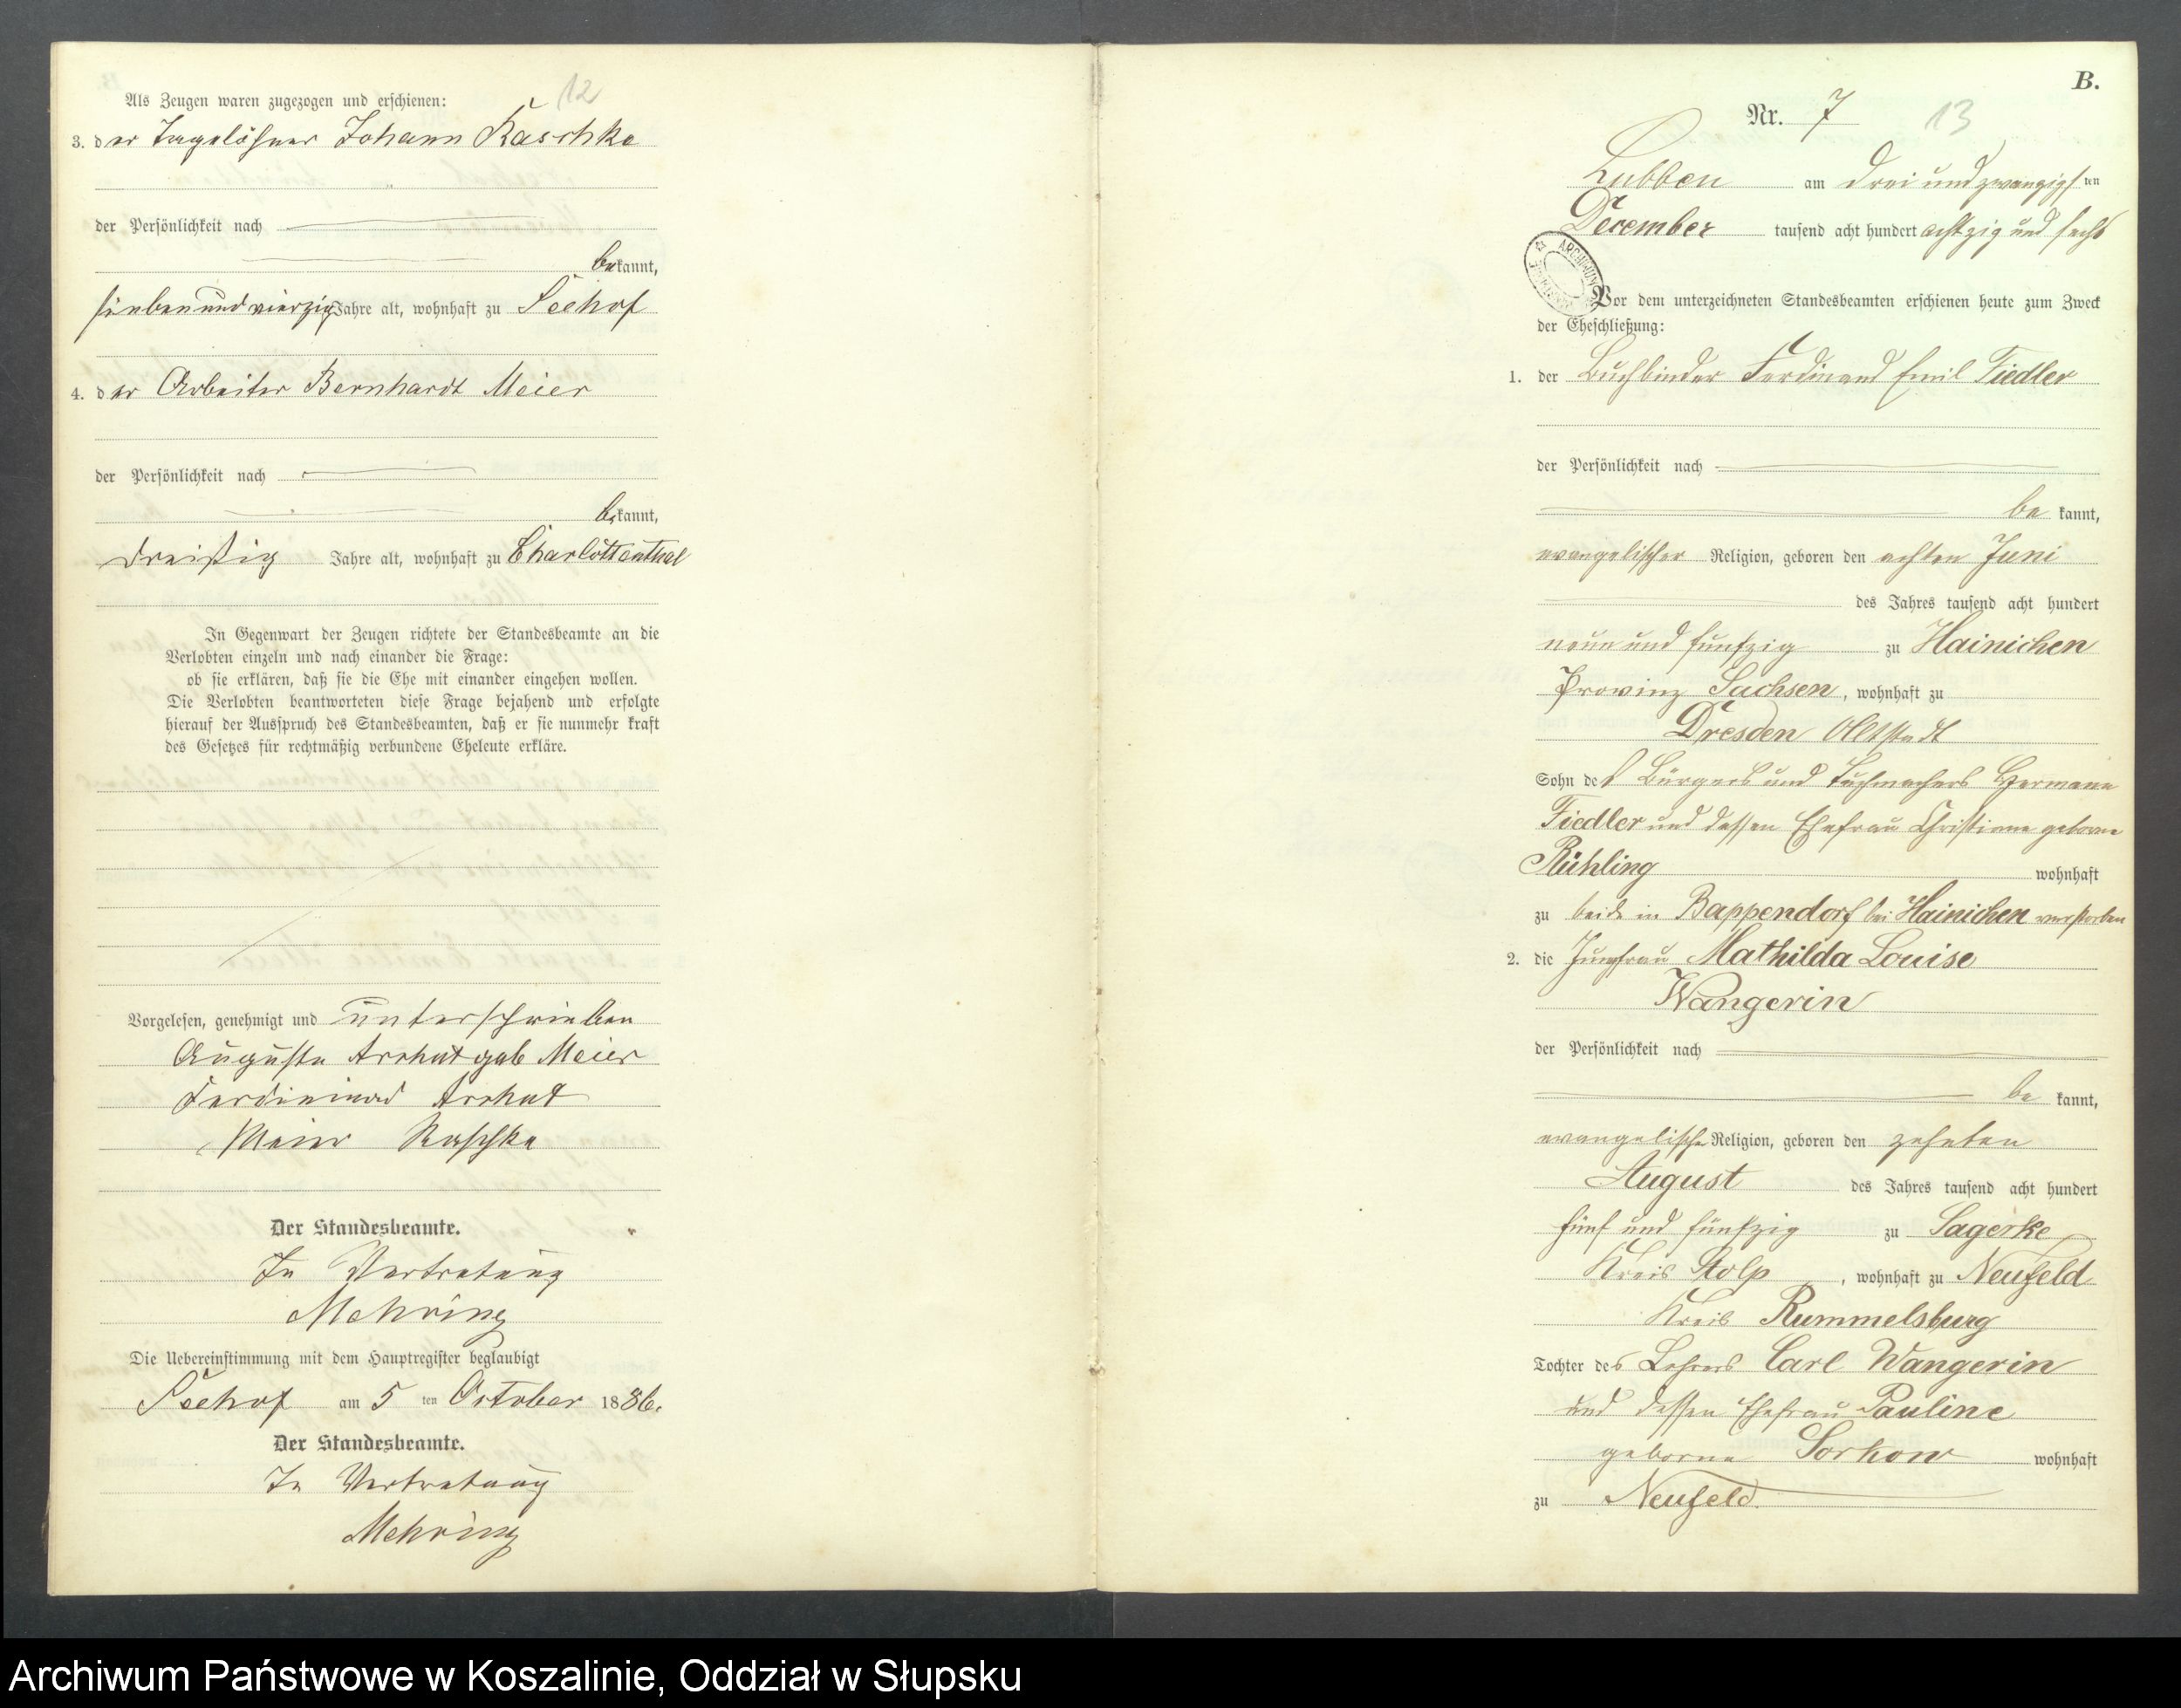 12
Als Zeugen waren zugezogen und erschienen:
3. der Tagelöhner Johann Raschke
der Persönlichkeit nach
bekannt,
sieben und vierzig Jahre alt, wohnhaft zu Seehof
4. der Arbeiter Bernhardt Meier
der Persönlichkeit nach
bekannt,
dreißig Jahre alt, wohnhaft zu Charlottenthal
In Gegenwart der Zeugen richtete der Standesbeamte an die
Verlobten einzeln und nach einander die Frage:
ob sie erklären, daß sie die Ehe mit einander eingehen wollen.
Die Verlobten beantworteten diese Frage bejahend und erfolgte
hierauf der Ausspruch des Standesbeamten, daß er sie nunmehr kraft
des Gesetzes für rechtmäßig verbundene Eheleute erkläre.
Vorgelesen, genehmigt und unterschrieben
Auguste geb Meier
Ferdinand
Meier Raschke
Der Standesbeamte.
In Vertretung
Mehring
Die Uebereinstimmung mit dem Hauptregister beglaubigt
Seehof am 5 ten October 1886.
Der Standesbeamte.
In Vertretung
Mehring
B.
Nr. 7 13
Lubben am drei und zwanzigsten
December tausend acht hundert achtzig und sechs
Vor dem unterzeichneten Standesbeamten erschienen heute zum Zweck
der Eheschließung:
1. der Buchbinder Ferdinand Emil Fiedler
der Persönlichkeit nach
be kannt,
evangelischer Religion, geboren den achten Juni
des Jahres tausend acht hundert
neun und funfzig zu Hainichen
Provinz Sachsen, wohnhaft zu
Dresden Altstadt
Sohn des Bürgers und Tuchmachers Hermann
Fiedler und dessen Ehefrau Christiane geborne
Rühling wohnhaft
zu beide in Bappendorf bei Hainichen verstorben
2. die Jungfrau Mathilda Louise
Wangerin
der Persönlichkeit nach
be kannt,
evangelischer Religion, geboren den zehnten
August des Jahres tausend acht hundert
fünf und fünfzig zu Sagerke
Kreis Stolp, wohnhaft zu Neufeld
Kreis Rummelsburg
Tochter des Lehrers Carl Wangerin
und dessen Ehefrau Pauline
geborne Sorkow wohnhaft
zu Neufeld.
Archiwum Państwowe w Koszalinie, Oddział w Słupsku